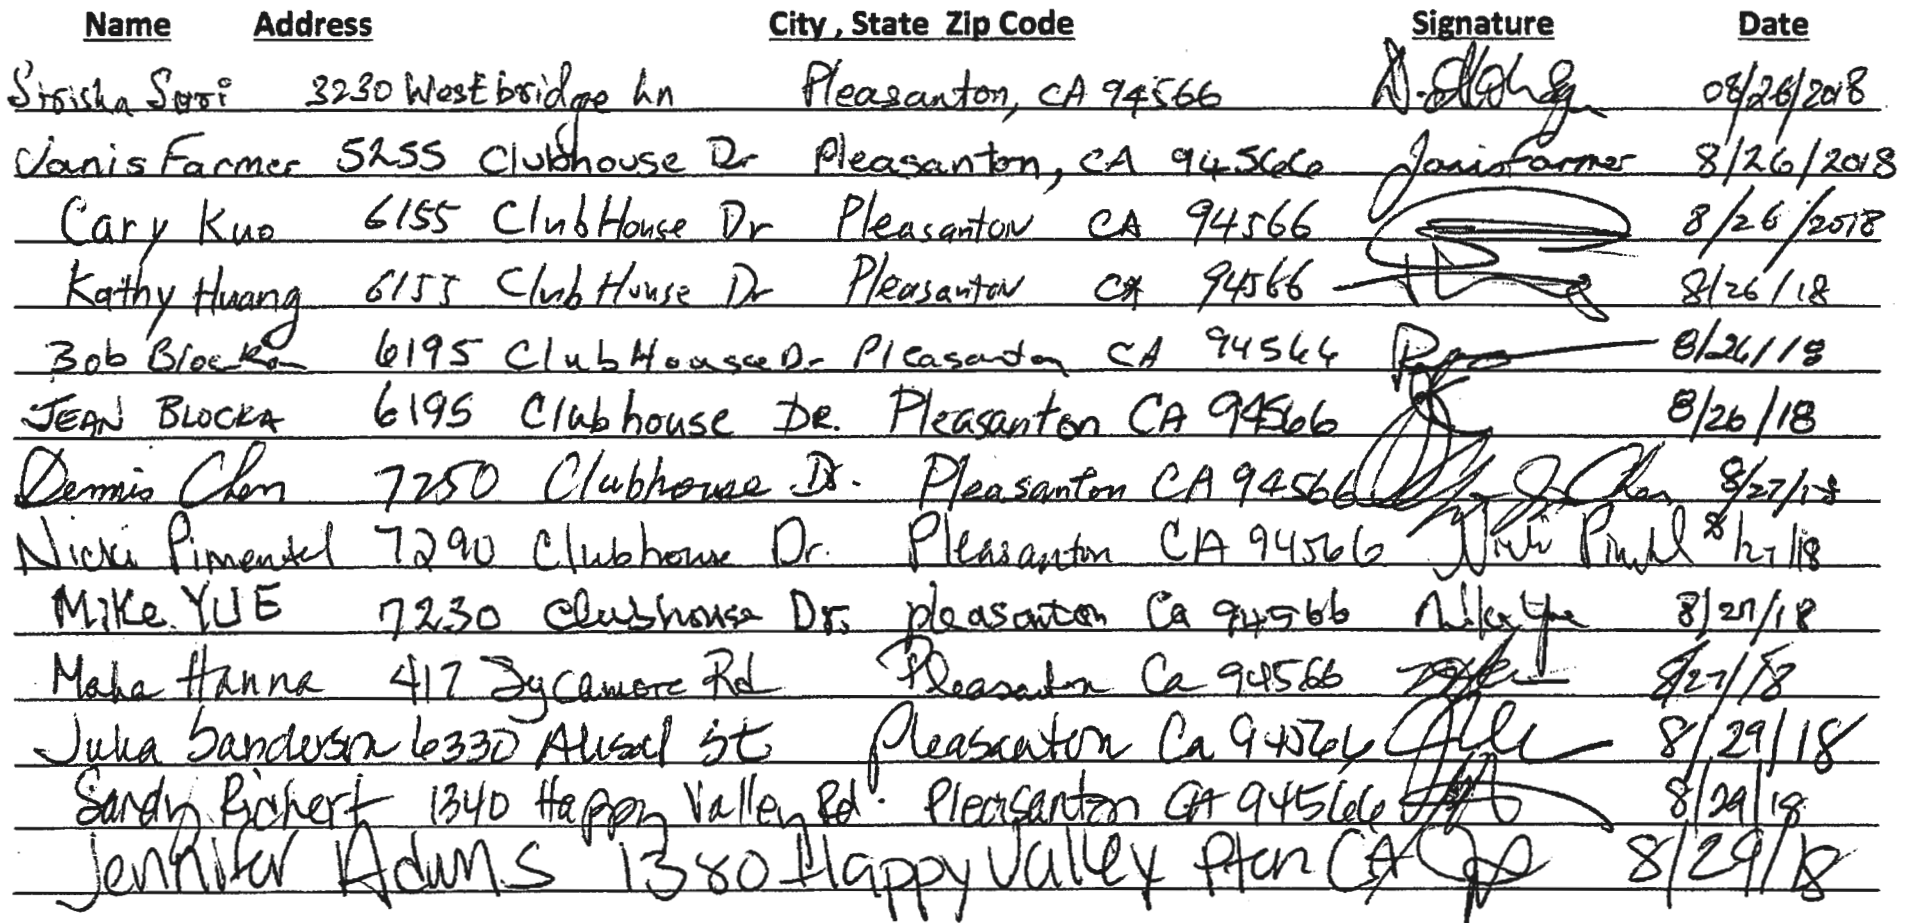 Name Address City , State Zip Code Signature Date
Sirisha Suri 3230 Westbridge Ln Pleasanton, CA 94566 08/26/2018
Janis Farmer 5255 Clubhouse Dr Pleasanton, CA 94566 Janis Farmer 8/26/2018
Cary Kuo 6155 ClubHouse Dr Pleasanton CA 94566 8/26/2018
Kathy Huang 6155 ClubHouse Dr Pleasanton CA 94566 8/26/18
Bob 6195 ClubHouse Dr Pleasanton CA 94566 8/26/18
JEAN BLOCKA 6195 Clubhouse DR. Pleasanton CA 94566 8/26/18
Dennis Chen 7250 Clubhouse Dr. Pleasanton CA 94566 Chen 8/27/18
Nicki Pimentel 7290 Clubhouse Dr. Pleasanton CA 94566 8/27/18
Mike YUE 7230 clubhouse Dr. pleasanton Ca 94566 Mike Yue 8/27/18
Maha Hanna 417 Sycamore Rd Pleasanton Ca 94566 8/27/18
Julia Sanderson 6330 Alisal St Pleasanton Ca 94566 8/29/18
Sandy Richert 1340 Happy Valley Rd. Pleasanton CA 94566 8/29/18
Jennifer Adams 1380 Happy Valley Ptan CA 8/29/18